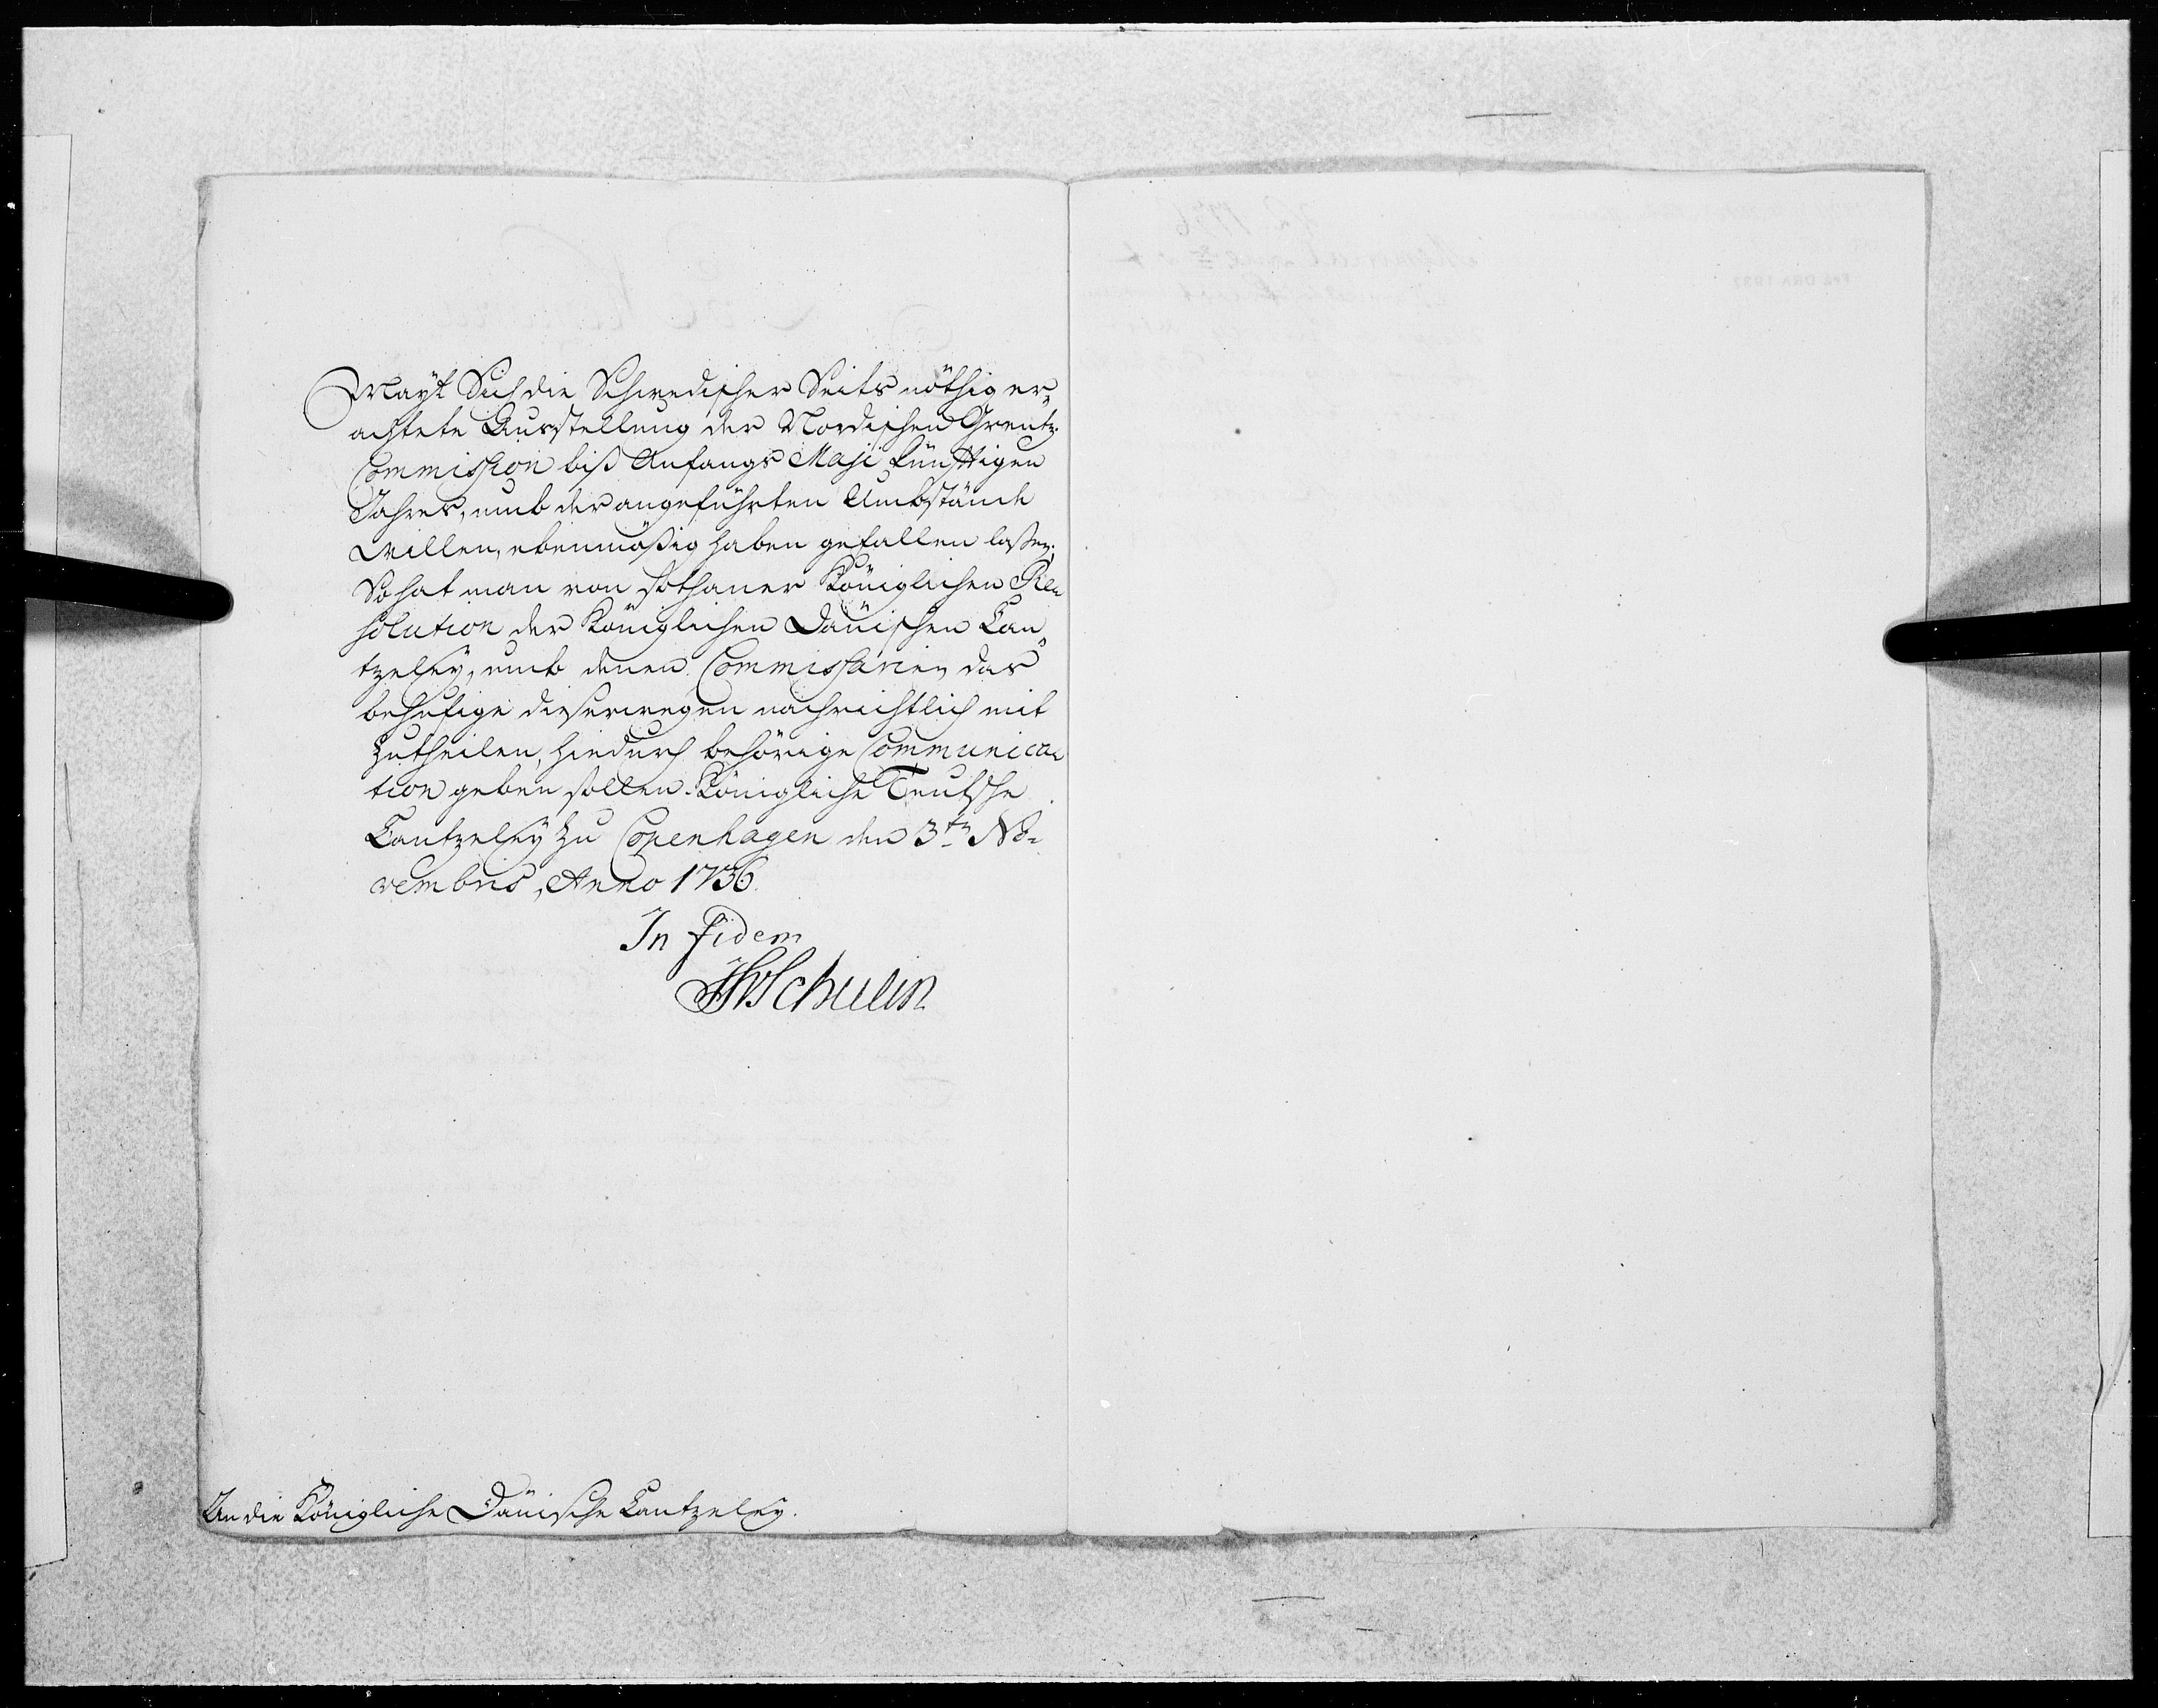 Mayt. Sich die Schwedischer Seits nöthig er-
achtete Ausstellung der Nordischen Grentz-
Commission biß Anfangs Maji künfftigen
Jahres, umb der angeführten Umbstände
willen, ebenmäßig haben gefallen laßen;
So hat man von sothaner Königlichen Re-
solution der Königlichen Dänischen Can-
tzeley, umb denen Commissarien das
behufige dieserwegen nachrichtlich mit
zutheilen, hiedurch behörige Communica-
tion geben sollen. Königliche Teutsche
Cantzeley zu Copenhagen den 3ten No-
vembris, Anno 1736.
In fidem
JHVSchulin
An die Königliche Dänische Cantzeley.